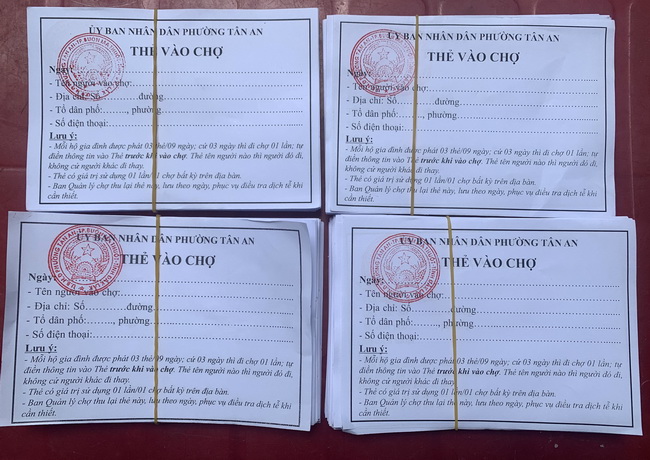 ỦY BAN NHÂN DÂN PHƯỜNG TÂN AN
THẺ VÀO CHỢ
Ngày:
- Tên người vào chợ:
- Địa chỉ: Số.............đường.
- Tổ dân phố:......., phường
- Số điện thoại:
Lưu ý:
- Mỗi hộ gia đình được phát 03 thẻ/09 ngày; cứ 03 ngày thì đi chợ 01 lần; tự
điền thông tin vào Thẻ trước khi vào chợ. Thẻ tên người nào thì người đó đi,
không cử người khác đi thay.
- Thẻ có giá trị sử dụng 01 lần/01 chợ bất kỳ trên địa bàn.
- Ban Quản lý chợ thu lại thẻ này, lưu theo ngày, phục vụ điều tra dịch tễ khi
cần thiết.
ỦY BAN NHÂN DÂN PHƯỜNG TÂN AN
THẺ VÀO CHỢ
Ngày:
- Tên người vào chợ:
- Địa chỉ: Số.............đường.
- Tổ dân phố:......., phường
- Số điện thoại:
Lưu ý:
- Mỗi hộ gia đình được phát 03 thẻ/09 ngày; cứ 03 ngày thì đi chợ 01 lần; tự
điền thông tin vào Thẻ trước khi vào chợ. Thẻ tên người nào thì người đó đi,
không cử người khác đi thay.
- Thẻ có giá trị sử dụng 01 lần/01 chợ bất kỳ trên địa bàn.
- Ban Quản lý chợ thu lại thẻ này, lưu theo ngày, phục vụ điều tra dịch tễ khi
cần thiết.
ỦY BAN NHÂN DÂN PHƯỜNG TÂN AN
THẺ VÀO CHỢ
Ngày:
- Tên người vào chợ:
- Địa chỉ: Số.............đường.
- Tổ dân phố:......., phường
- Số điện thoại:
Lưu ý:
- Mỗi hộ gia đình được phát 03 thẻ/09 ngày; cứ 03 ngày thì đi chợ 01 lần; tự
điền thông tin vào Thẻ trước khi vào chợ. Thẻ tên người nào thì người đó đi,
không cử người khác đi thay.
- Thẻ có giá trị sử dụng 01 lần/01 chợ bất kỳ trên địa bàn.
- Ban Quản lý chợ thu lại thẻ này, lưu theo ngày, phục vụ điều tra dịch tễ khi
cần thiết.
ỦY BAN NHÂN DÂN PHƯỜNG TÂN AN
THẺ VÀO CHỢ
Ngày:
- Tên người vào chợ:
- Địa chỉ: Số.............đường.
- Tổ dân phố:......., phường
- Số điện thoại:
Lưu ý:
- Mỗi hộ gia đình được phát 03 thẻ/09 ngày; cứ 03 ngày thì đi chợ 01 lần; tự
điền thông tin vào Thẻ trước khi vào chợ. Thẻ tên người nào thì người đó đi,
không cử người khác đi thay.
- Thẻ có giá trị sử dụng 01 lần/01 chợ bất kỳ trên địa bàn.
- Ban Quản lý chợ thu lại thẻ này, lưu theo ngày, phục vụ điều tra dịch tễ khi
cần thiết.